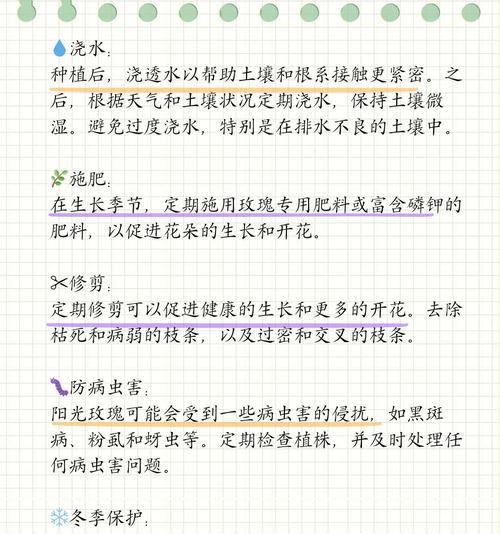 浇水：
种植后，浇透水以帮助土壤和根系接触更紧密。之
后，根据天气和土壤状况定期浇水，保持土壤微
湿。避免过度浇水，特别是在排水不良的土壤中。
施肥：
在生长季节，定期施用玫瑰专用肥料或富含磷钾的
肥料，以促进花朵的生长和开花。
修剪：
定期修剪可以促进健康的生长和更多的开花。去除
枯死和病弱的枝条，以及过密和交叉的枝条。
防病虫害：
阳光玫瑰可能会受到一些病虫害的侵扰，如黑斑
病、粉虱和蚜虫等。定期检查植株，并及时处理任
何病虫害问题。
冬季保护：